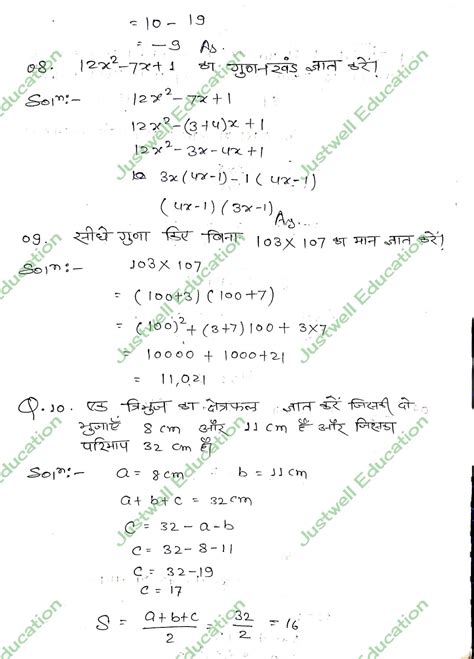 = 10 - 19
= -9 Ans.
08. 12x²-7x+1 का गुणनखंड ज्ञात करें।
Solⁿ:- 12x²-7x+1
12x²-(3+4)x+1
12x²-3x-4x+1
3x(4x-1)-1(4x-1)
(4x-1)(3x-1) Ans.
09. सीधे गुणा किए बिना 103×107 का मान ज्ञात करें।
Solⁿ:- 103×107
= (100+3)(100+7)
= (100)²+(3+7)100+3×7
= 10000+1000+21
= 11,021
Q.10. एक त्रिभुज का क्षेत्रफल ज्ञात करें जिसकी दो
भुजाएँ 8 cm और 11 cm हैं और जिसका
परिमाप 32 cm है।
Solⁿ:- a = 8cm b = 11cm
a+b+c = 32cm
C = 32-a-b
C = 32-8-11
C = 32-19
C = 17
S = a+b+c/2 = 32/2 = 16
Justwell Education
Justwell Education
Justwell Education
Justwell Education
Justwell Education
Justwell Education